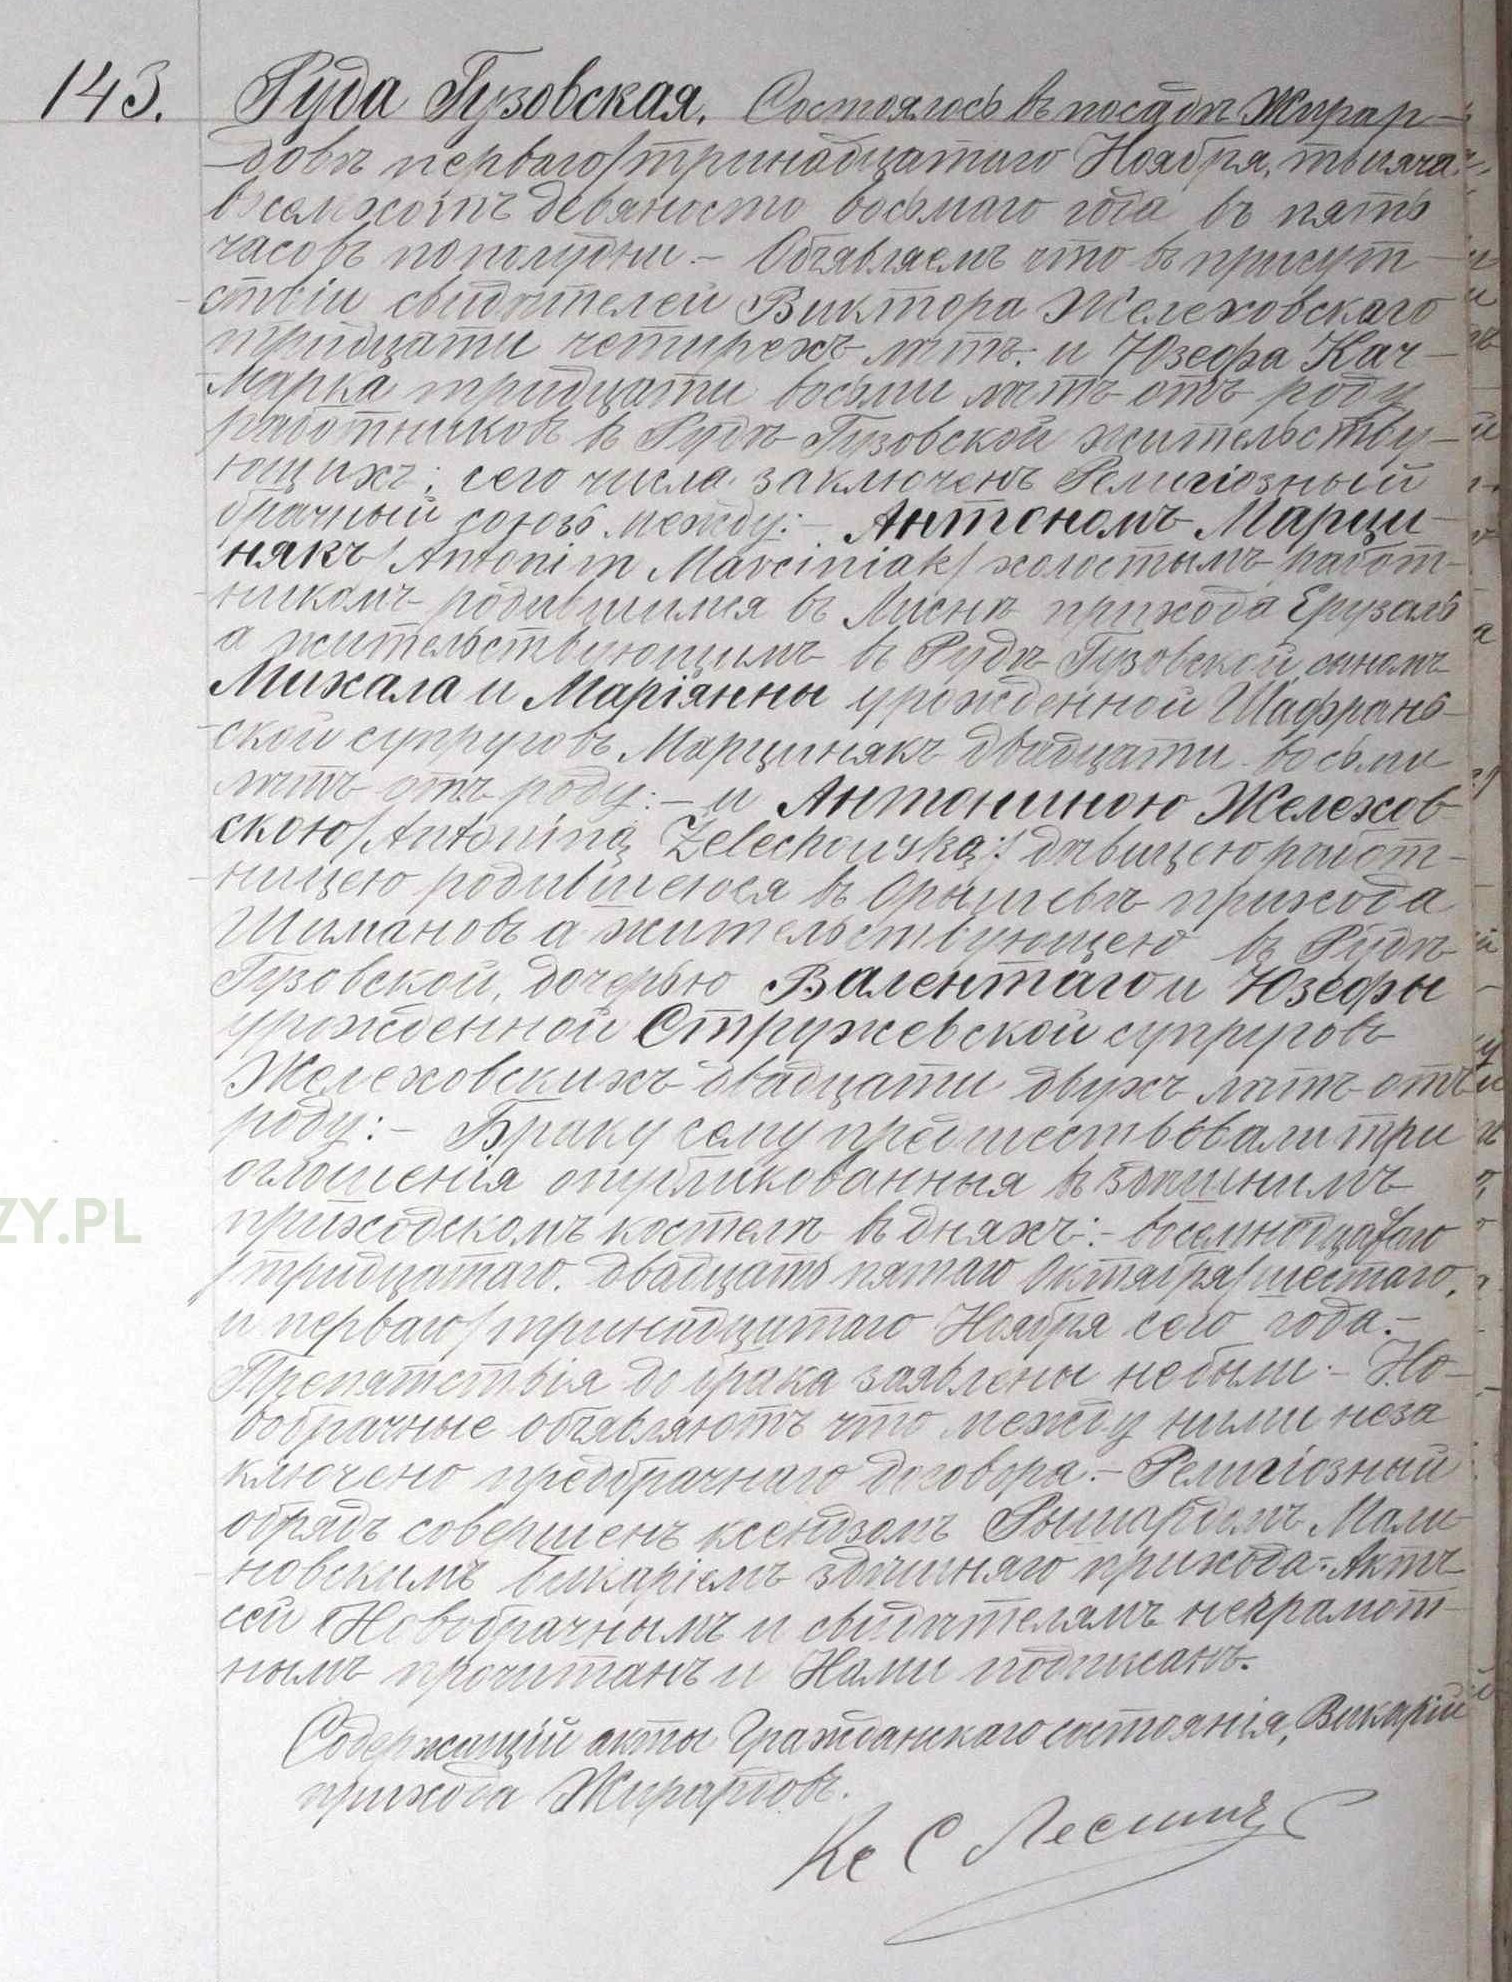 143. Руда Гузовская. Состоялось въ посадѣ Жирар-
довѣ перваго/тринадцатаго Ноября, тысяча
восемьсотъ девяносто восьмаго года въ пять
часовъ пополудни. – Объявляемъ что въ присут-
ствіи свидѣтелей Виктора Желеховскаго
тридцати четырехъ лѣтъ. и Юзефа Кач-
марка тридцати восьми лѣтъ отъ роду
работниковъ въ Рудѣ Гузовской жительству-
ющихъ; сего числа заключенъ Религіозный
брачный союзъ между: – Антономъ Марци-
някъ /Antonim Marciniak/ холостымъ, работ-
никомъ родившимся въ Лисне прихода Ерузаль
а жительствующимъ въ Рудѣ Гузовской, сыномъ
Михала и Маріянны урожденной Шафрань-
ской супруговъ Марцинякъ двадцати восьми
лѣтъ отъ роду: – и Антониною Желехов-
скою /Antoniną Żelechowską:/ дѣвицею работ-
ницею родившеюся въ Орышевѣ прихода
Шимановъ а жительствующею въ Рудѣ
Гузовской, дочерью Валентаго и Юзефы
урожденной Стружевской супруговъ
Желеховскихъ двадцати двухъ лѣтъ отъ
роду: – Браку сему предшествовали три
оглошенія опубликованныя въ здѣшнимъ
приходскомъ костелѣ въ дняхъ: – восемнадцатаго
/тридцатаго. двадцать пятаго Октября/шестаго,
и перваго/тринадцатаго Ноября сего года. –
Препятствія до брака заявлены небыли – Но-
вобрачные объявляютъ что между ними неза
ключено предбрачнаго договора. – Религіозный
обрядъ совершенъ ксендзомъ Рышардомъ Мали-
новскимъ викаріемъ здѣшняго прихода. – Актъ
сей Новобрачнымъ и свидѣтелямъ неграмот-
нымъ прочитанъ и Нами подписанъ.
Содержащій акты Гражданскаго состоянія, Викарій
прихода Жирардовъ.
Кс С
ZY.PL